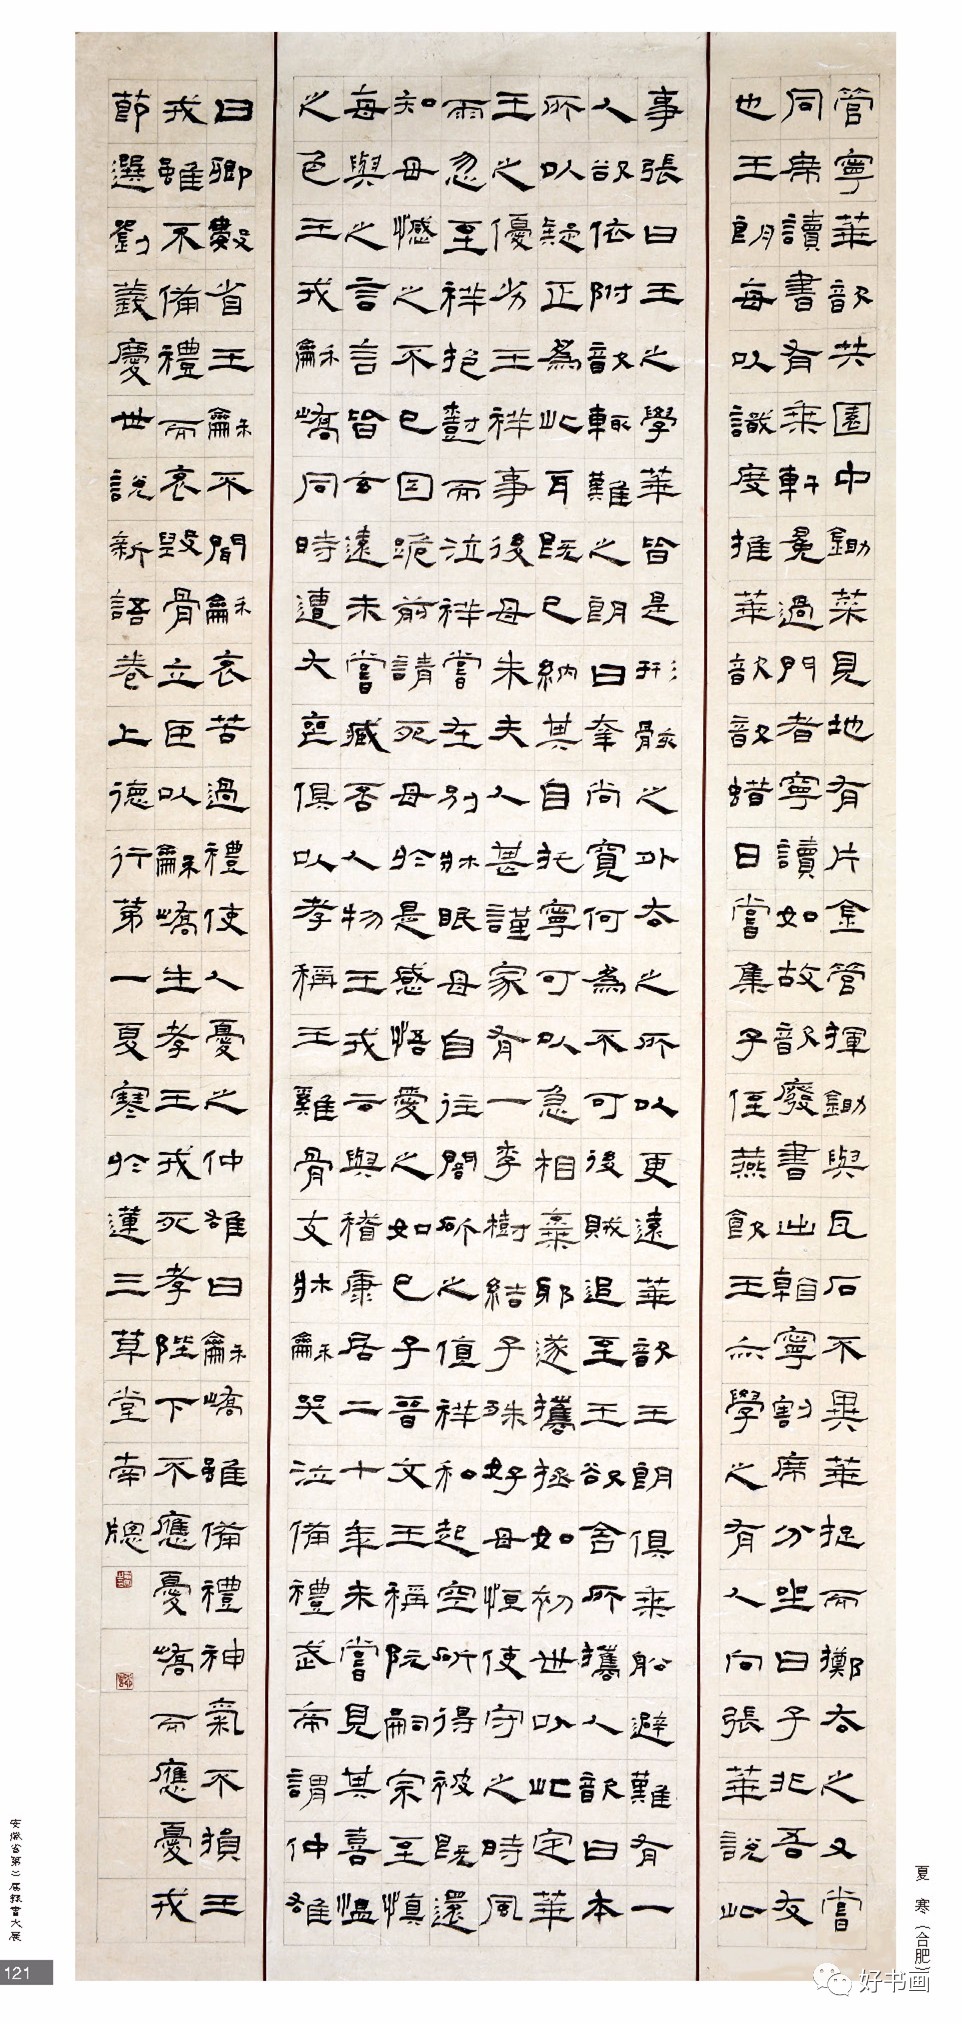 管寧華歆共園中鋤菜見地有片金管揮鋤與瓦石不異華捉而擲去之又嘗
同席讀書有乘軒冕過門者寧讀如故歆廢書出看寧割席分坐曰子非吾友
也王朗每以識度推華歆歆蜡日嘗集子侄燕飲王亦學之有人向張華說此
事張曰王之學華皆是形骸之外去之所以更遠華歆王朗俱乘船避難有一
人欲依附歆輒難之朗曰幸尚寬何為不可後賊追至王欲舍所攜人歆曰本
所以疑正為此耳既已納其自托寧可以急相棄邪遂攜拯如初世以此定華
王之優劣王祥事後母朱夫人甚謹家有一李樹結子殊好母恒使守之時風
雨忽至祥抱樹而泣祥嘗在別牀眠母自往闇斫之值祥和起空斫得被既還
知母憾之不已因跪前請死母於是感悟愛之如己子晉文王稱阮嗣宗至慎
每與之言言皆玄遠未嘗臧否人物王戎云與稽康居二十年未嘗見其喜慍
之色王戎龢嶠同時遭大喪俱以孝稱王雞骨支牀龢哭泣備禮武帝謂仲雄
曰卿數省王龢不聞龢哀苦過禮使人憂之仲雄曰龢嶠雖備禮神氣不損王
戎雖不備禮而哀毀骨立臣以龢嶠生孝王戎死孝陛下不應憂嶠而應憂戎
節選劉義慶世說新語卷上德行第一夏寒於蓮三草堂南牕
夏 寒（合肥）
安徽省第二届隶書大展
121
好书画